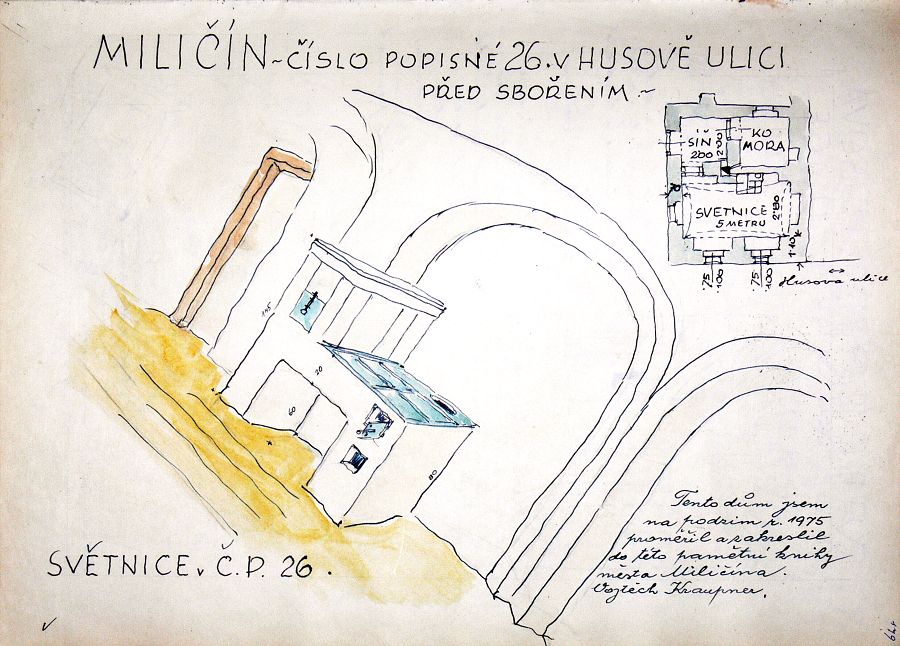 MILIČÍN ~ ČÍSLO POPISNÉ 26. V HUSOVĚ ULICI
PŘED SBOŘENÍM ~
SÍŇ
200
2·00
KO
MORA
SVETNICE
5 METRU
2·80
1·10
·75
·100
·75
·100
Husova ulice
145
20
60
80
Tento dům jsem
na podzim r. 1975
proměřil a zakreslil
do této pamětní knihy
města Miličína.
Vojtěch Kraupner.
SVĚTNICE v Č.P. 26.